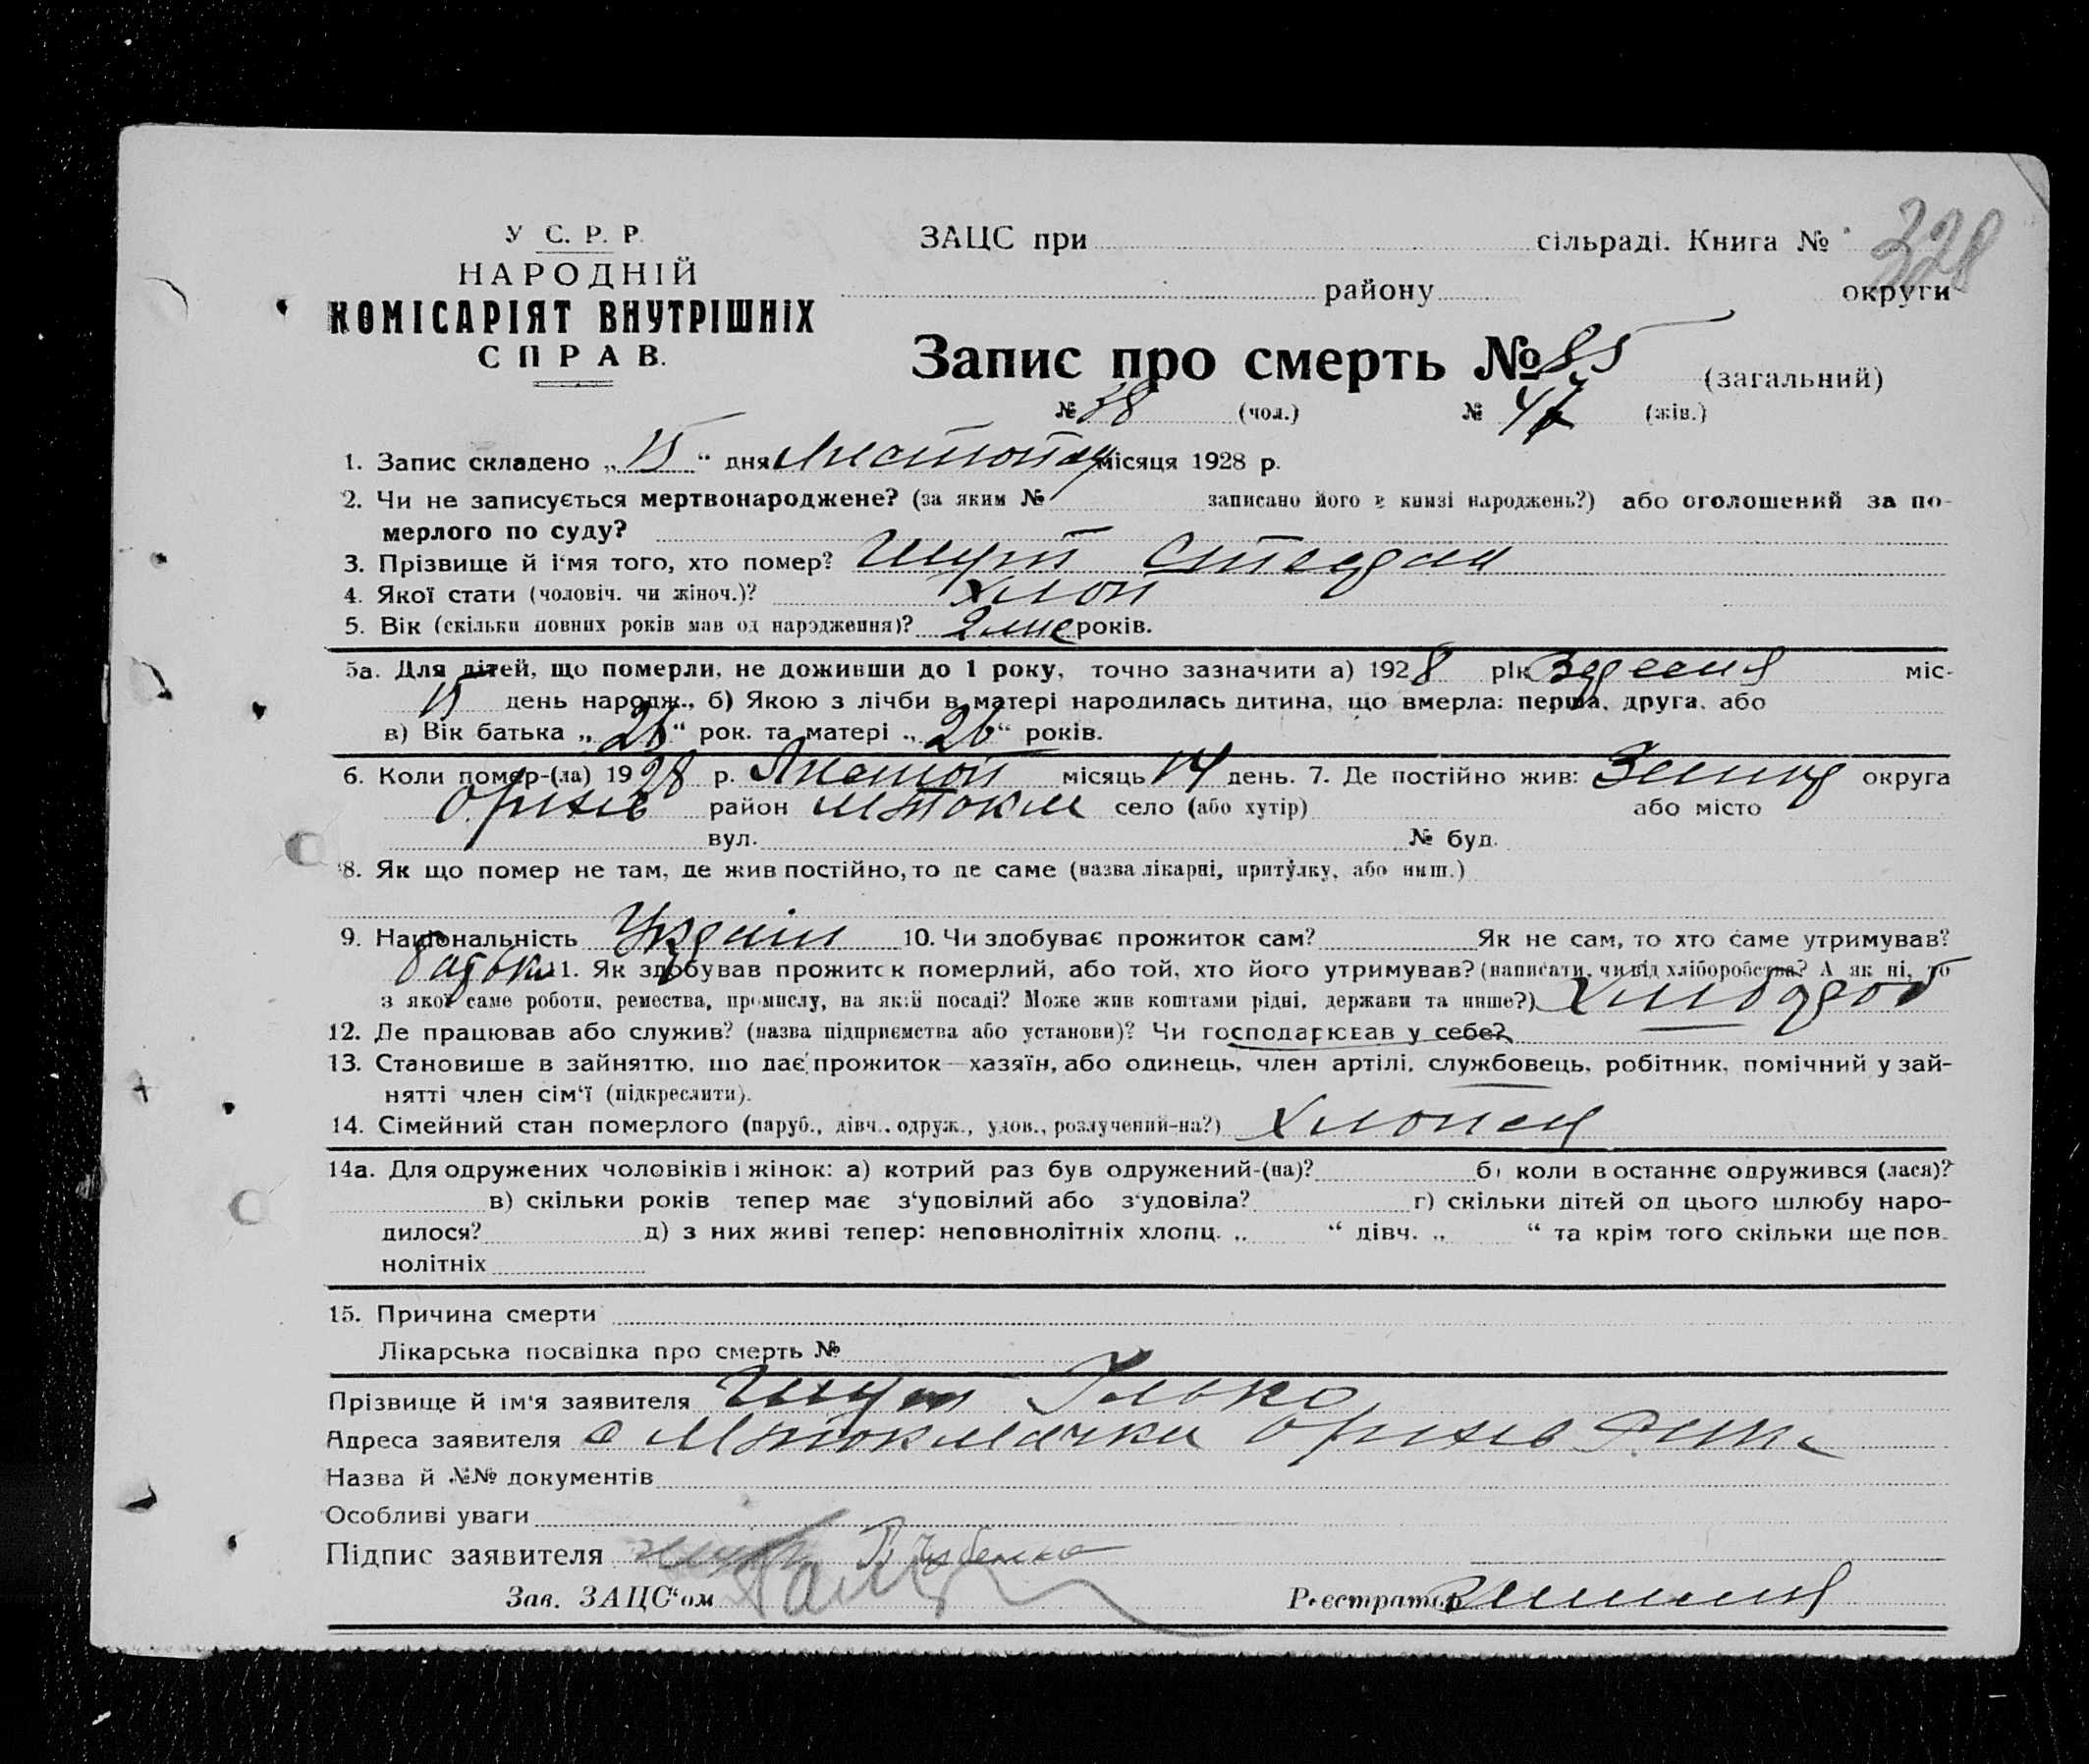 У С. Р. Р.
НАРОДНІЙ
КОМІСАРІЯТ ВНУТРІШНІХ
СПРАВ.
ЗАЦС при сільраді. Книга № 328
району округи
Запис про смерть № 85 (загальний)
№ 38 (чол.) № 47 (жін.)
1. Запис складено „ 15 “ дня Листопад місяця 1928 р.
2. Чи не записується мертвонароджене? (за яким № записано його в книзі народжень?) або оголошений за по-
мерлого по суду?
3. Прізвище й ім'я того, хто помер? Шут Степан
4. Якої стати (чоловіч. чи жіноч.)? Хлоп
5. Вік (скільки повних років мав од народження)? 2 міс років.
5а. Для дітей, що померли, не доживши до 1 року, точно зазначити а) 1928 рік Вересня міс-
15 день народж., б) Якою з лічби в матері народилась дитина, що вмерла: перша, друга, або
в) Вік батька „ 26 “ рок. та матері „ 26 “ років.
6. Коли помер-(ла) 1928 р. Листоп місяць 14 день. 7. Де постійно жив: округа
Оріхів район МТокм село (або хутір) або місто
вул. № буд.
8. Як що помер не там, де жив постійно, то де саме (назва лікарні, притулку, або инш.)
9. Національність Україн 10. Чи здобуває прожиток сам? Як не сам, то хто саме утримував?
батько 11. Як здобував прожиток померлий, або той, хто його утримував? (написати, чи від хліборобства? А як ні, то
з якої саме роботи, ремества, промислу, на якій посаді? Може жив коштами рідні, держави та инше?) Хлібороб
12. Де працював або служив? (назва підприємства або установи)? Чи господарював у себе?
13. Становише в зайняттю, що дає прожиток—хазяїн, або одинець, член артілі, службовець, робітник, помічний у зай-
нятті член сім'ї (підкреслити).
14. Сімейний стан померлого (паруб., дівч., одруж., удов., розлучений-на?) Хлопец
14а. Для одружених чоловіків і жінок: а) котрий раз був одружений-(на)? б) коли востаннє одружився (лася)?
в) скільки років тепер має з'уповілий або з'удовіла? г) скільки дітей од цього шлюбу наро-
дилося? д) з них живі тепер: неповнолітніх хлопц. „ “ дівч. „ “ та крім того скільки ще пов-
нолітніх
15. Причина смерти
Лікарська посвідка про смерть №
Прізвище й ім'я заявителя Шут Илько
Адреса заявителя с МТокмачка Оріхів
Назва й №№ документів
Особливі уваги
Підпис заявителя
Зав. ЗАЦС'ом Реєстратор